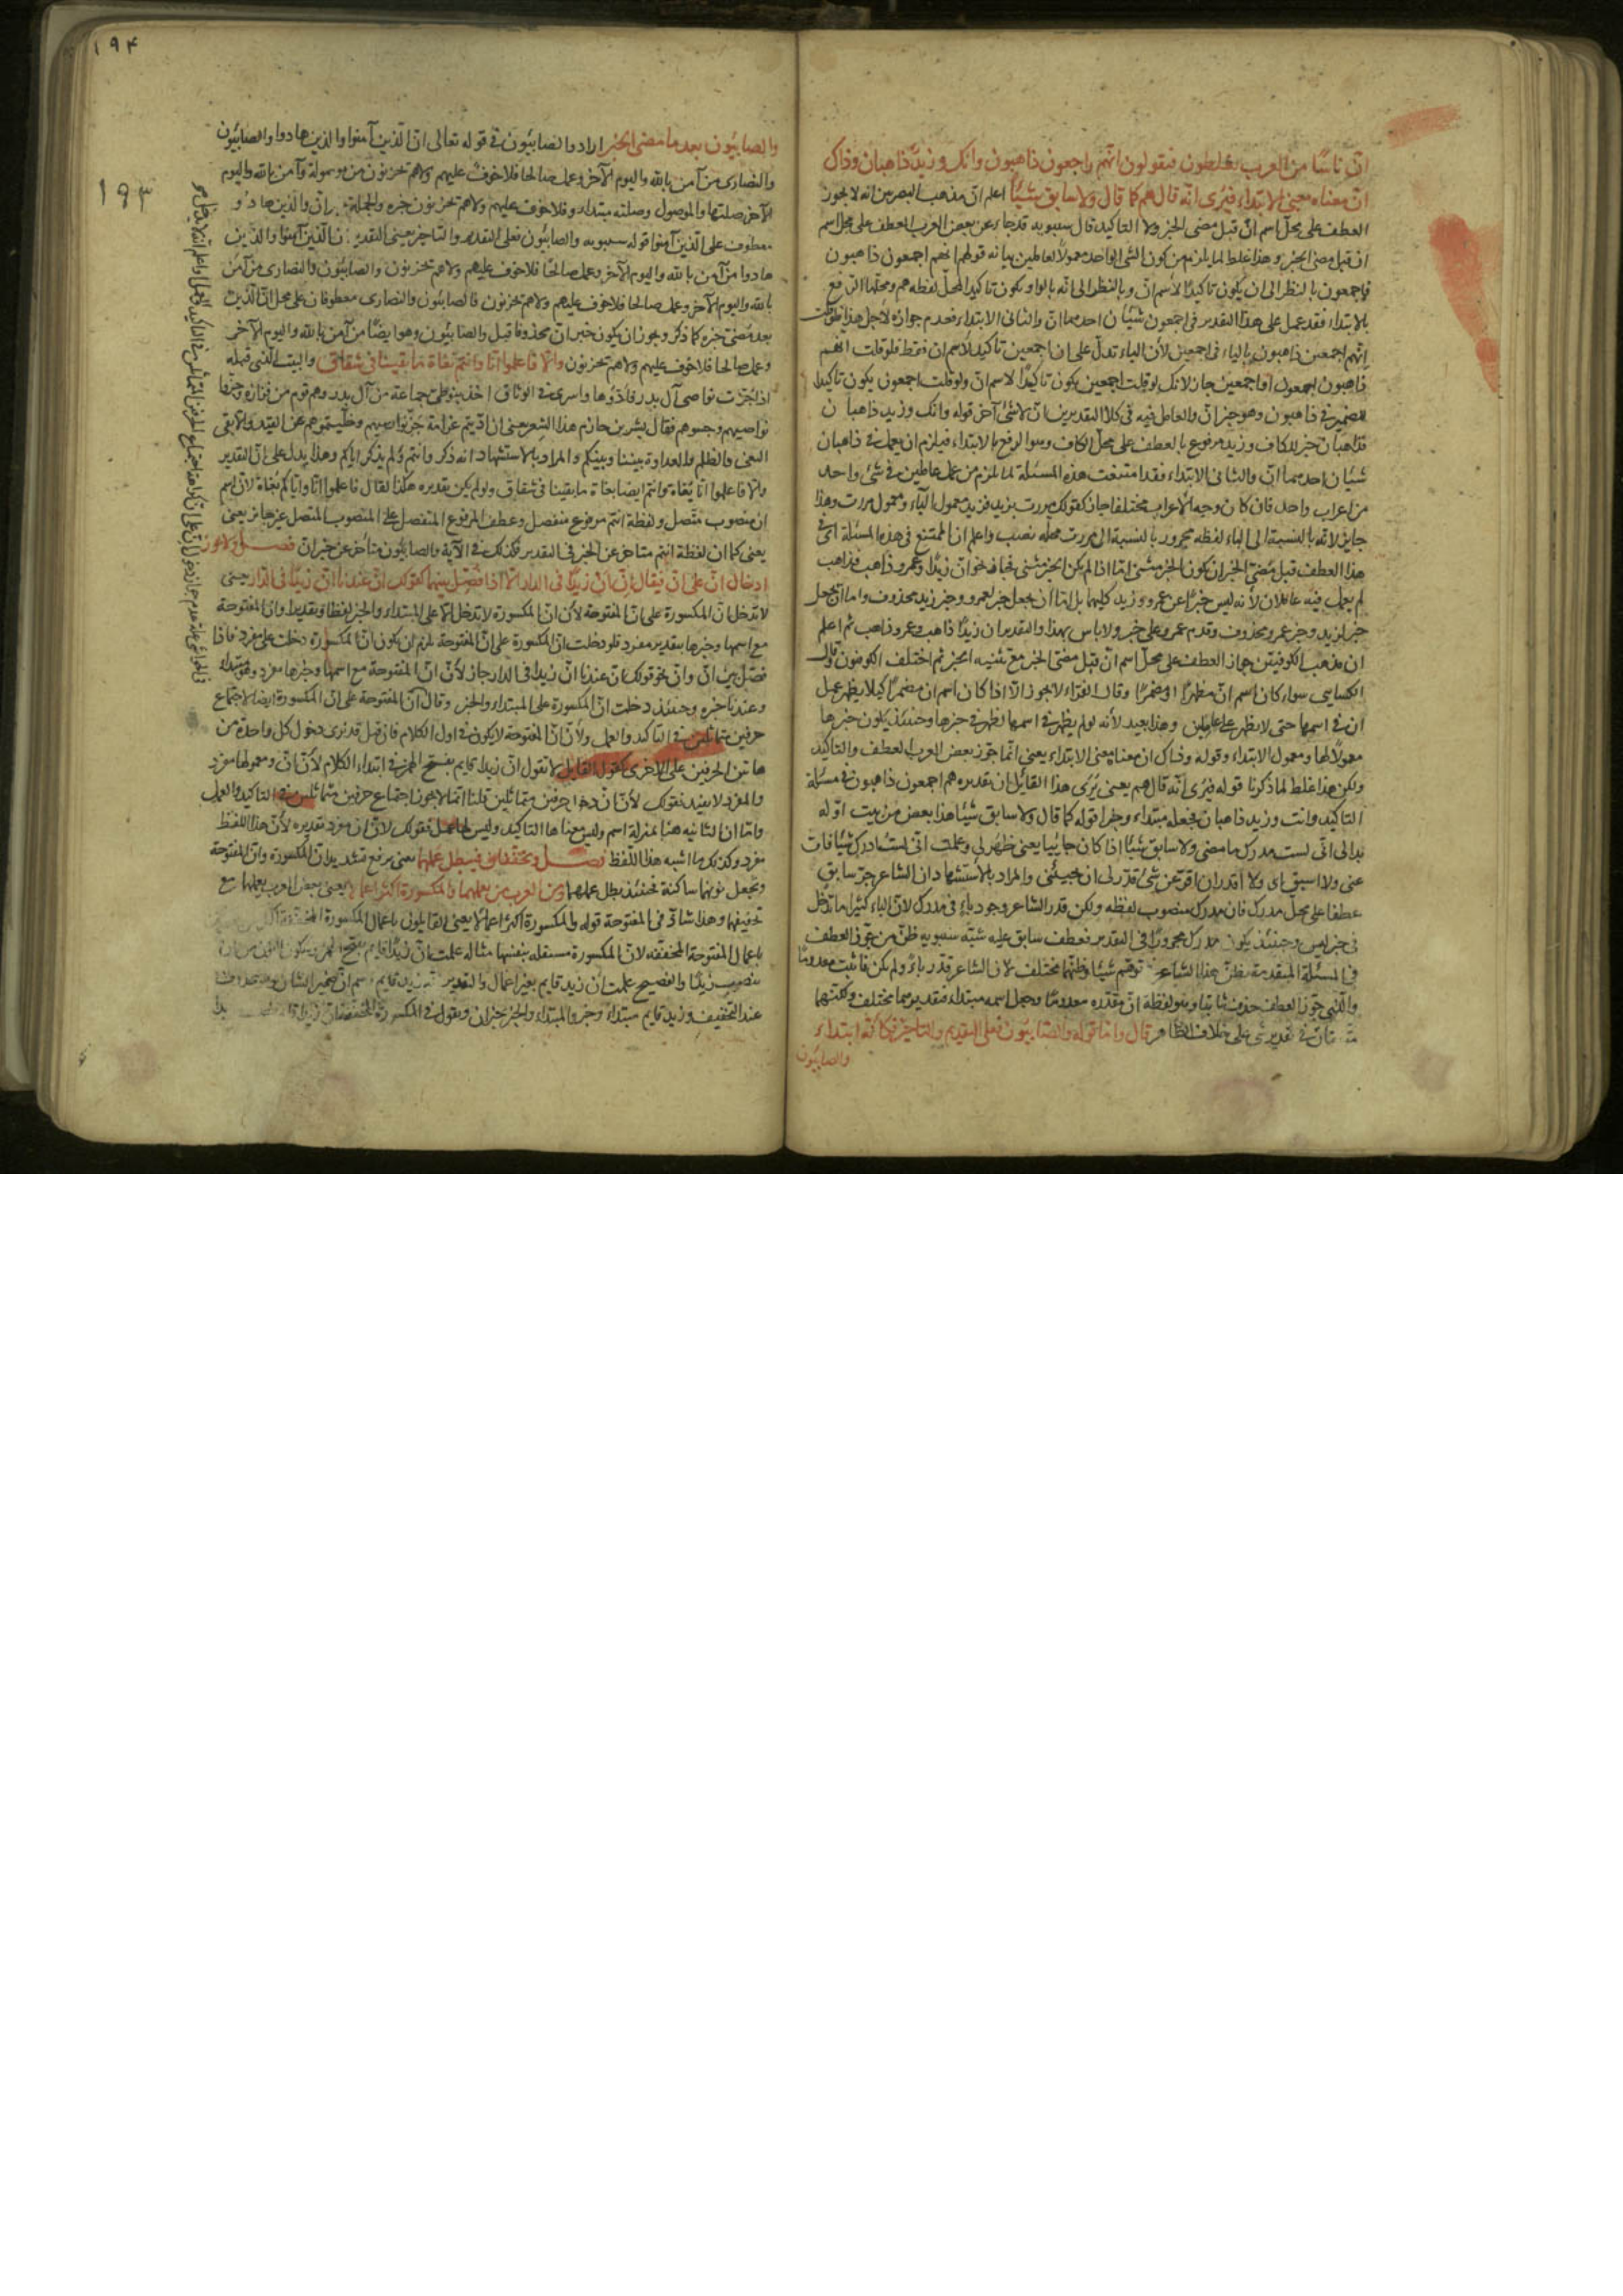 انّ ناسًا من العرب يغلطون فيقولون انّهم اجمعون ذاهبون وانك وزيدٌ ذاهبان وذاك
انّ معناه معنى الابتداء فيُرى انّه قال هم كما قال ولا سابق شيئًا اعلم انّ مذهب البصريين انه لا يجوز
العطف على محلّ اسم انّ قبل مضى الخبر ولا التاكيد قال سيبويه قد جاء عن بعض العرب العطف على محل اسم
ان قبل مضى الخبر وهذا غلط لما يلزم من كون الشئ الواحد معمولاً لعاملين بيانه قولهم انهم اجمعون ذاهبون
فاجمعون بالنظر الى ان يكون تاكيدًا لاسم انّ وبالنظر الى انّه بالواو يكون تاكيد المحلّ لفظه هم ومحلّها الرفع
بالابتداء فقد عمل على هذا التقدير فى اجمعون شيئان احدهما انّ والثانى الابتداء فعدم جوازه لاجل هذا فلو قلت
انّهم اجمعين ذاهبون بالياء فى اجمعين لأن الياء تدلّ على ان اجمعين تاكيد لاسم ان فقط فلو قلت انهم
ذاهبون اجمعون او اجمعين جاز لانك لو قلت اجمعين يكون تاكيدًا لاسم انّ ولو قلت اجمعون يكون تاكيدا
للضمير فى ذاهبون وهو خبر انّ والعامل فيه فى كلا التقديرين انّ لا شئ آخر قوله وانك وزيد ذاهبان
فذاهبان خبر للكاف وزيد مرفوع بالعطف على محلّ الكاف وهو الرفع بالابتداء فيلزم ان يعمل فى ذاهبان
شيئان احدهما انّ والثانى الابتداء فقد امتنعت هذه المسئلة لما لزم من عمل عاملين فى شئ واحد
من اعراب واحد فان كان وجه الأعراب مختلفا جاز كقولك مررت بزيد فزيد معمول الباء ومعمول مررت وهذا
جايز لانّه بالنسبة الى الباء لفظه مجرور بالنسبة الى مررت محلّه نصب واعلم ان الممتنع فى هذه المسئلة
هذا العطف قبل مضىّ الخبر ان يكون الخبر مثنى امّا اذا لم يكن الخبر مثنى فجاز نحو انّ زيدًا وعمرو ذاهب فذاهب
لم يعمل فيه عاملان لأنه ليس خبرًا عن عمرو وزيد كليهما بل امّا ان يجعل خبر لعمرو وخبر زيد محذوف واما ان يجعل
خبر لزيد وخبر عمرو محذوف وقدم عمرو على خبر ولا باس بهذا والتقدير ان زيدًا ذاهب وعمرو ذاهب ثم اعلم
ان مذهب الكوفيين جواز العطف على محلّ اسم انّ قبل مضى الخبر مع تثنيه الخبر ثم اختلف الكوفيون قال
الكسايى سواء كان اسم انّ مظهرًا او مضمرًا وقال الفرّاء لا يجوز الّا اذا كان اسم ان مضمرًا كيلا يظهر عمل
ان فى اسمها حتى لا يظهر وهذا بعيد لأنه لو لم يظهر فى اسمها تظهر فى خبرها وحينئذ يكون خبرها
معمولاً لها ومعمول الابتداء وقوله وذاك ان معناه معنى الابتداء يعنى انّما جوّز بعض العرب العطف والتاكيد
ولكن هذا غلط لما ذكرنا قوله فيُرى انّه قال هم يعنى يُرَى هذا القايل ان تقديره هم اجمعون ذاهبون فى مسئلة
التاكيد وانت وزيد ذاهبان فجعله مبتداء وخبرا قوله كما قال ولا سابق شيئا هذا بعض من بيت اوّله
بدا لى انّى لست مدرك ما مضى ولا سابق شيئًا اذا كان جائيا يعنى ظهر لى وعلمت انّى لست ادرك شيًا فات
عنى ولا اسبق اى ولا اقدر ان افرّ عن شئ قدّر لى ان يجيئنى والمراد بالاستشهاد ان الشاعر جرّ سابق
عطفا على محلّ مدرك فان مدرك منصوب لفظه ولكن قدّر الشاعر وجود باءٍ فى مدرك لانّ الباء كثيرا ما تدخل
فى خبر ليس وحينئذ يكون مدرك مجرورًا فى التقدير فعطف سابق عليه شبّه سيبويه ظنّ من جوّز العطف
فى المسئلة المتقدمة بظنّ هذا الشاعر توهّم شيئًا وظنّهما مختلف لانّ الشاعر قدّر باءً ولم يكن فاثبت معدومًا
والّذى جوّز العطف حذف ثابتا وهو لفظة انّ فقدّره معدومًا وجعل اسمه مبتداء فتقديرهما مختلف ولكنّهما
فى تقدير شئ على خلاف الظاهر قال وامّا قوله والصّابيُون فعلى التقديم والتاخير فكأنّه ابتداء
والصابيُون
١٩٤
١٩٣
والصابيُون بعد ما مضى الخبر اراد والصابيُون فى قوله تعالى انّ الّذين آمنوا والذين هادوا والصّابيُون
والنصارى من آمن بالله واليوم الآخر وعمل صالحا فلا خوفٌ عليهم ولا هم يحزنون من موصولة وآمن بالله واليوم
الآخر صلتها والموصول وصلته مبتداء وفلا خوف عليهم ولا هم يحزنون خبره والجملة خبر انّ والذين هادوا
معطوف على الّذين آمنوا قوله سيبويه والصابيُون فعلى التقديم والتاخير يعنى التقدير انّ الّذين آمنوا والذين
هادوا من آمن بالله واليوم الآخر وعمل صالحًا فلا خوف عليهم ولا هم يحزنون والصابيُون والنصارى من آمن
بالله واليوم الآخر وعمل صالحا فلا خوف عليهم ولا هم يحزنون فالصابيُون والنصارى معطوفان على محل انّ الّذين
بعد مضىّ خبره كما ذكر ويجوز ان يكون خبر انّ محذوفا قبل والصابيُون وهو ايضًا من آمن بالله واليوم الآخر
وعمل صالحا فلا خوف عليهم ولا هم يحزنون والّا فاعلموا انّا وانتم بغاة ما بقينا فى شقاق والبيت الّذى قبله
اذا جُزّت نواصى آل بدر فادّوها واسرى فى الوثاق اخذ بنو طىّ جماعة من آل بدر وهم قوم من فزارة وجزّوا
نواصيهم وحبسوهم فقال بشر بن حازم هذا الشعر يعنى ان ادّيتم غرامة جزّ نواصيهم وخلّيتموهم عن القيد والا بقى
البغى والظلم والعداوة بيننا وبينكم والمراد بالاستشهاد انه ذكر وانتم ولم يذكر اياكم وهذا يدل على انّ التقدير
والّا فاعلموا انّا بُغاة وانتم ايضا بغاة ما بقينا فى شقاق ولو لم يكن تقديره هكذا لقال فاعلموا انّا وايّاكم بُغاة لانّ اسم
ان منصوب متّصل ولفظة انتم مرفوع منفصل وعطف المرفوع المنفصل على المنصوب المتصل غير جائز يعنى
يعنى كما ان لفظة انتم متاخر عن الخبر فى التقدير فكذلك فى الآية والصابيُون متأخر عن خبر انّ فصل ولا يجوز
ادخال انّ على انّ فيقال انّ انّ زيدًا فى الدار الّا اذا فُصِل بينهما كقولك انّ عندنا انّ زيدًا فى الدار يعنى
لا تدخل انّ المكسورة على انّ المفتوحة لأن انّ المكسورة لا تدخل الّا على المبتداء والخبر لفظا وتقديرا وانّ المفتوحة
مع اسمها وخبرها بتقدير مفرد فلو دخلت انّ المكسورة على انّ المفتوحة لزم ان يكون انّ المكسورة دخلت على مفرد فاذا
فصّل بين انّ وانّ نحو قولك انّ عندنا انّ زيدا فى الدار جاز لأنّ انّ المفتوحة مع اسمها وخبرها مفرد وهو مبتداء
وعندنا خبره وحينئذ دخلت انّ المكسورة على المبتداء والخبر انّ المفتوحة على انّ المكسورة ايضا لاجتماع
حرفين متماثلين فى التاكيد والعمل ولأنّ انّ المفتوحة لا يكون فى اول الكلام فان قيل قد نرى دخول كل واحدة من
هاتين الحرفين على الاخرى كقول القايل لا تقول انّ زيدا قايم بفتح الهمزة فى ابتداء الكلام لأنّ انّ ومعمولها مفرد
والمفرد لا يفيد فقولك لأنّ انّ دخل حرفين متماثلين قلنا انّما لا يجوز اجتماع حرفين متماثلين فى التاكيد والعمل
وامّا ان الثانيه هنا بمنزلة اسم وليس معناها التاكيد وليس لها عمل فقولك لانّ انّ مفرد تقديره لأنّ هذا اللفظ
مفرد وكذلك ما اشبه هذا اللفظ فصل وتخفّفان فيبطل عملهما يعنى يرفع تشديد انّ المكسورة وانّ المفتوحة
وتجعل نونهما ساكنة فحينئذ يطل عملهما ومن العرب من يعملهما والمكسورة اكثر اعمالا يعنى بعض العرب يعملها مع
تخفيفها وهذا شاذ فى المفتوحة قوله والمكسورة اكثر اعمالا يعنى القايلون باعمال المكسورة المخففة
باعمال المفتوحة المخففه لانّ المكسورة مستقله بنفسها مثاله علمت انْ زيدًا قايم بفتح الهمزة وسكون النون
بنصب زيدًا والفصيح علمت ان زيد قايم بغير اعمال والتقدير انّه زيد قايم اسم انّ ضمير الشان وهو محذوف
عند التخفيف وزيد قايم مبتداء وخبر والمبتداء والخبر خبر ان وتقول فى المكسورة المخففة ان زيدًا